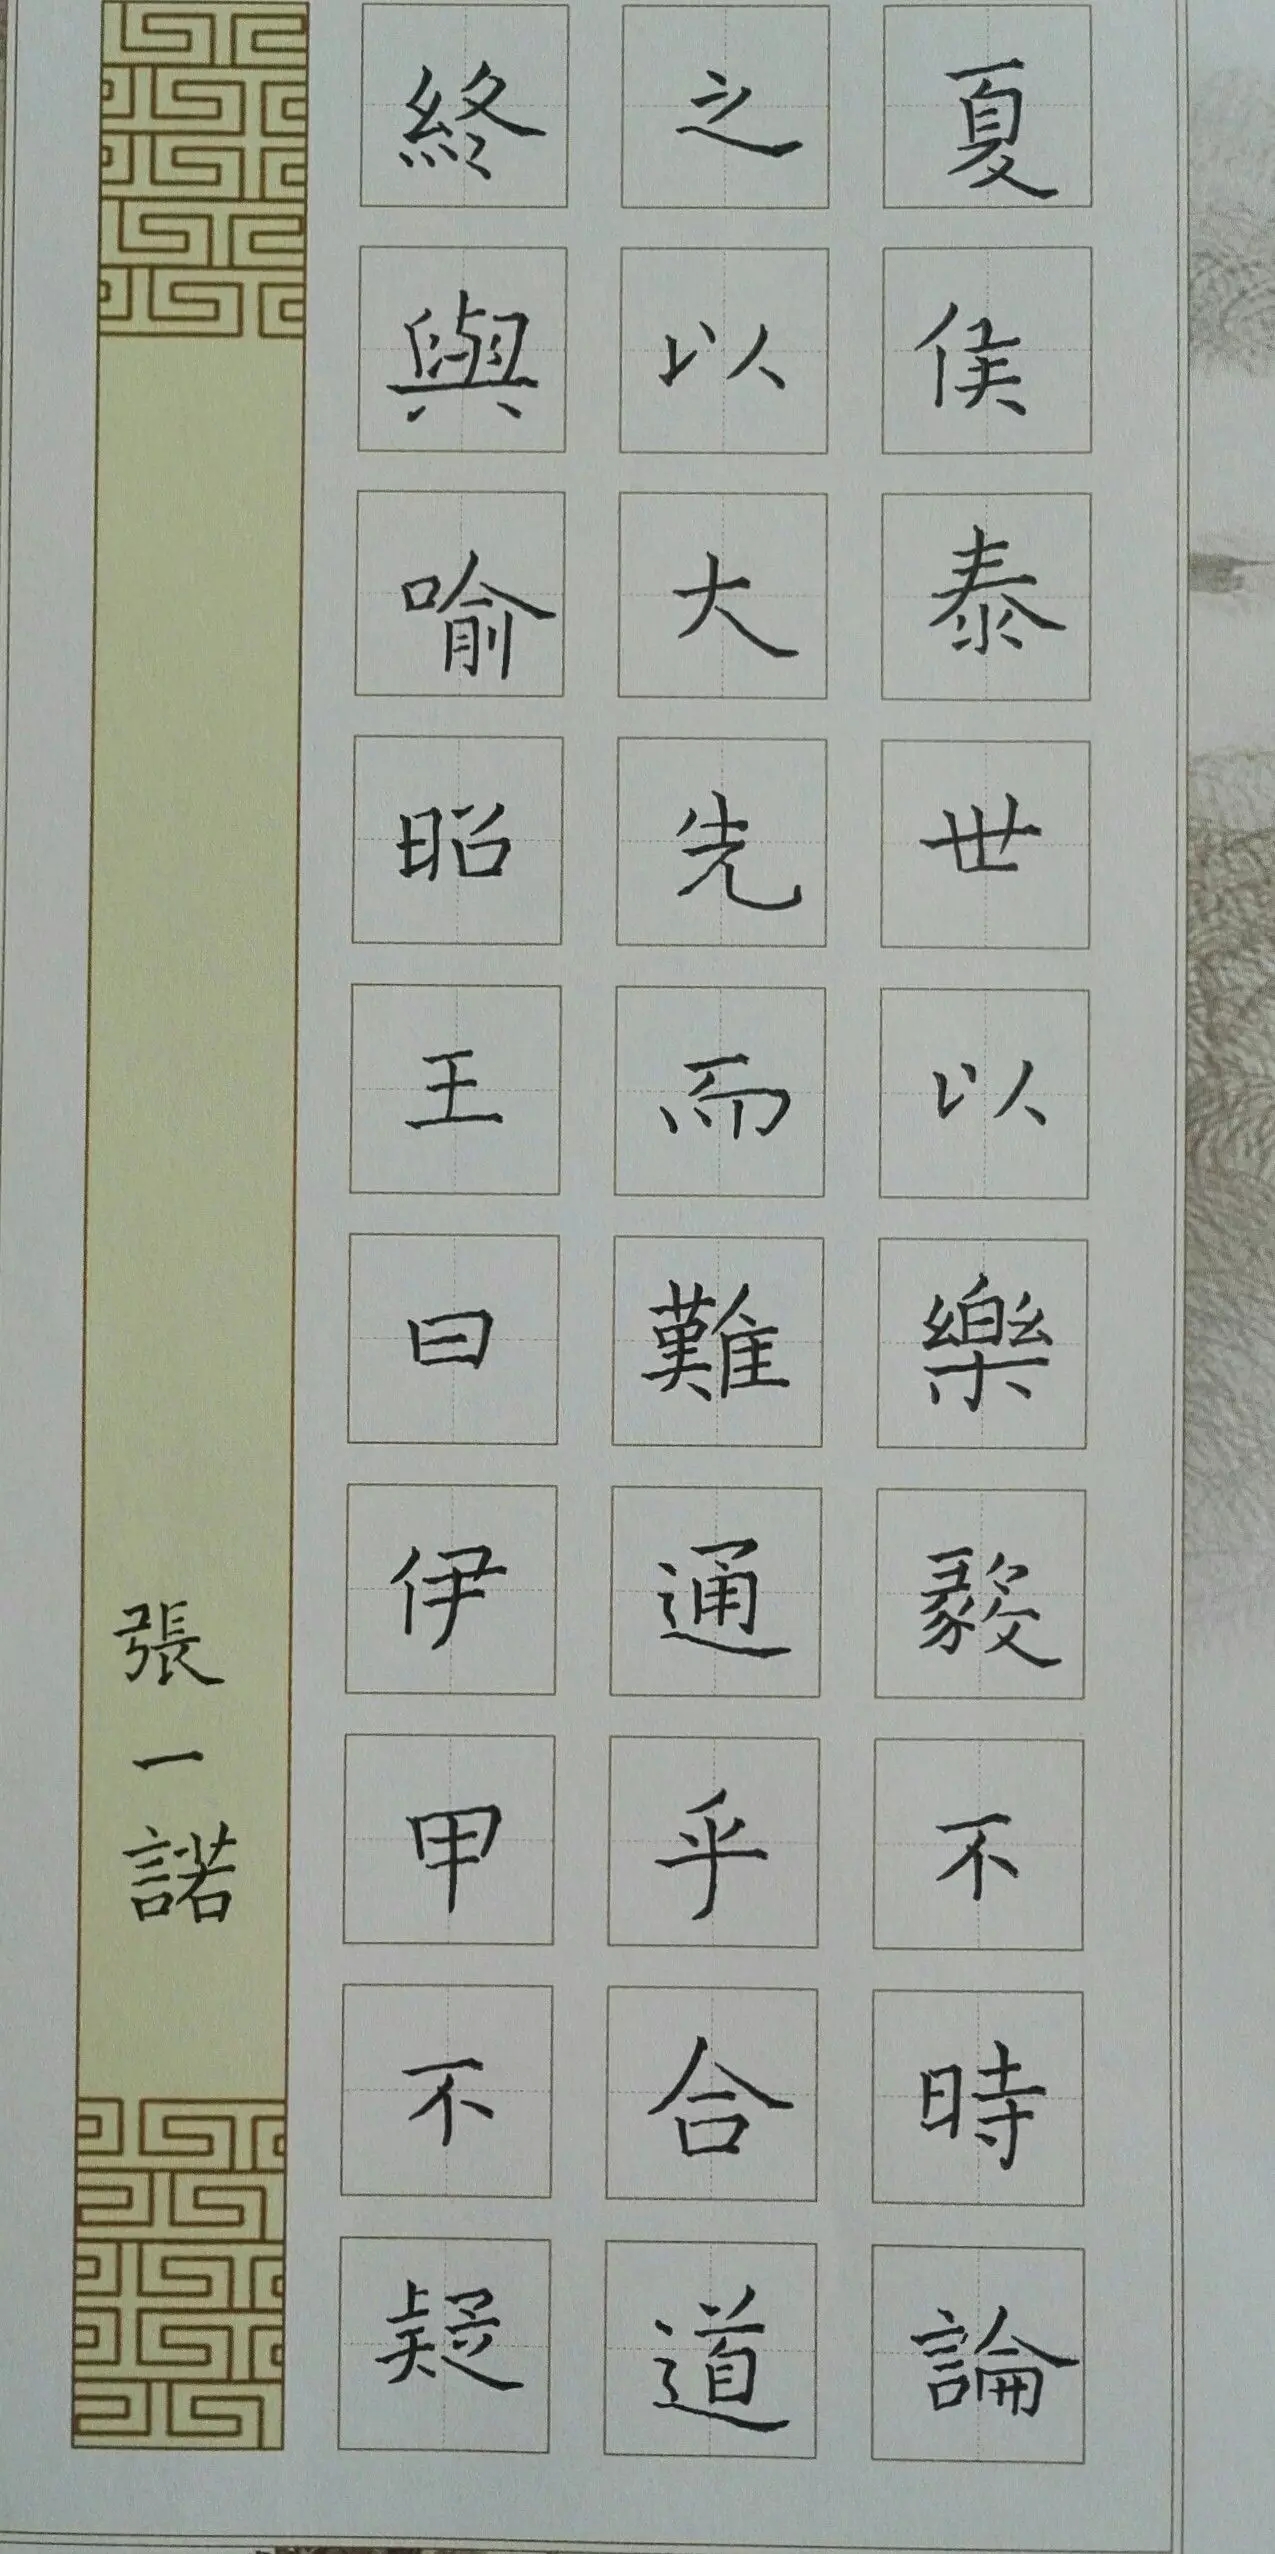 夏侯泰世以樂毅不時論
之以大先而難通乎合道
終與喻昭王曰伊甲不疑
張一諾